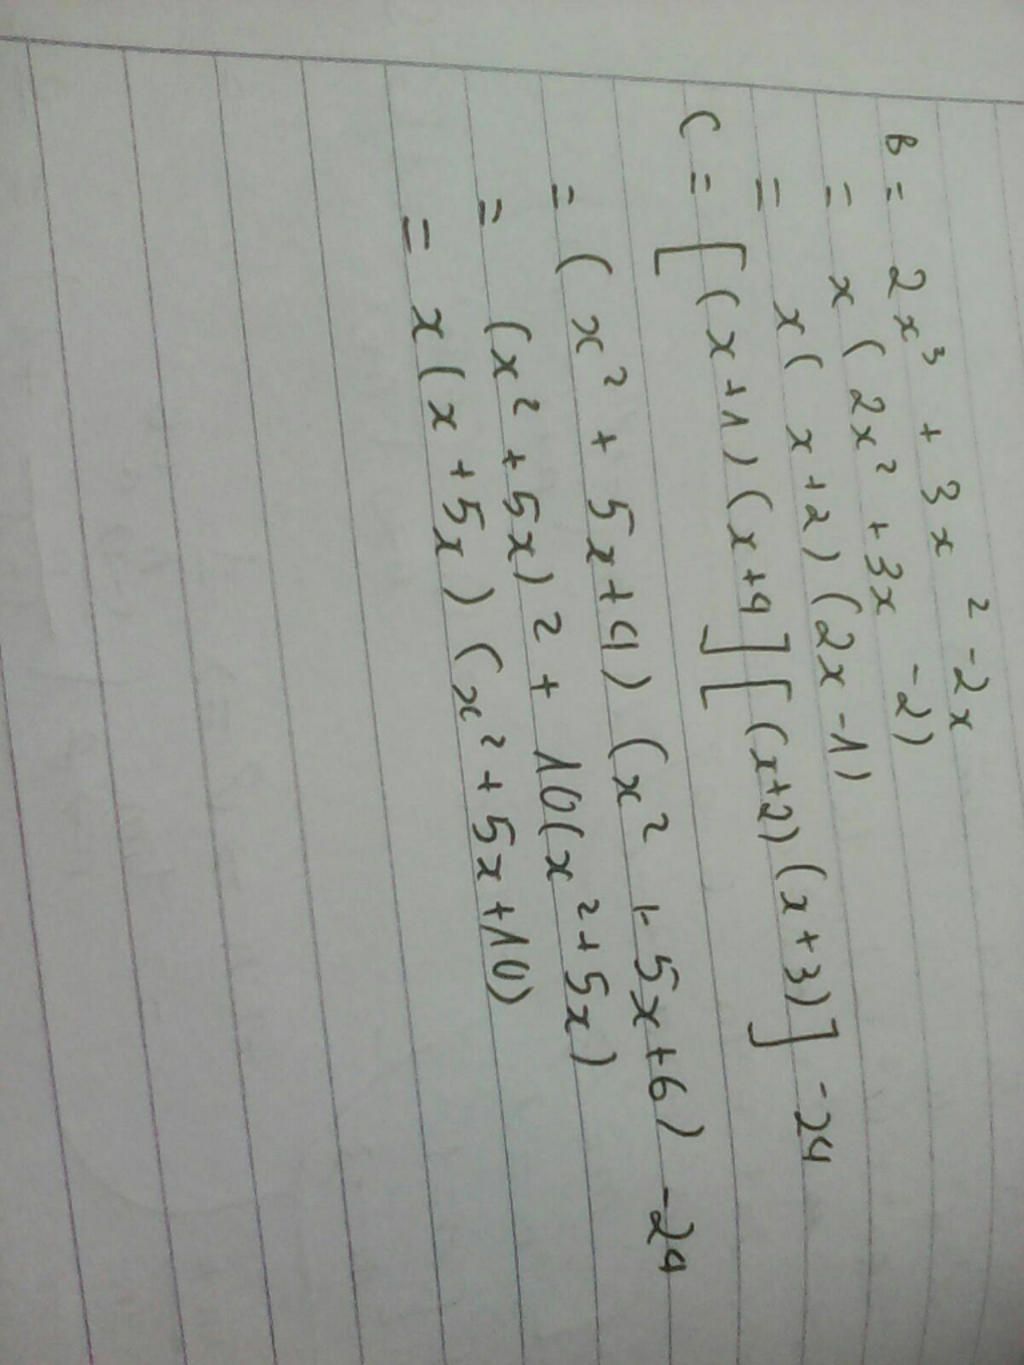 B = 2x³ + 3x² - 2x
= x(2x² + 3x - 2)
= x(x+2)(2x-1)
C = [(x+1)(x+4][(x+2)(x+3)] - 24
= (x² + 5x+4)(x² + 5x+6) - 24
= (x²+5x)² + 10(x²+5x)
= x(x+5x)(x²+5x+10)